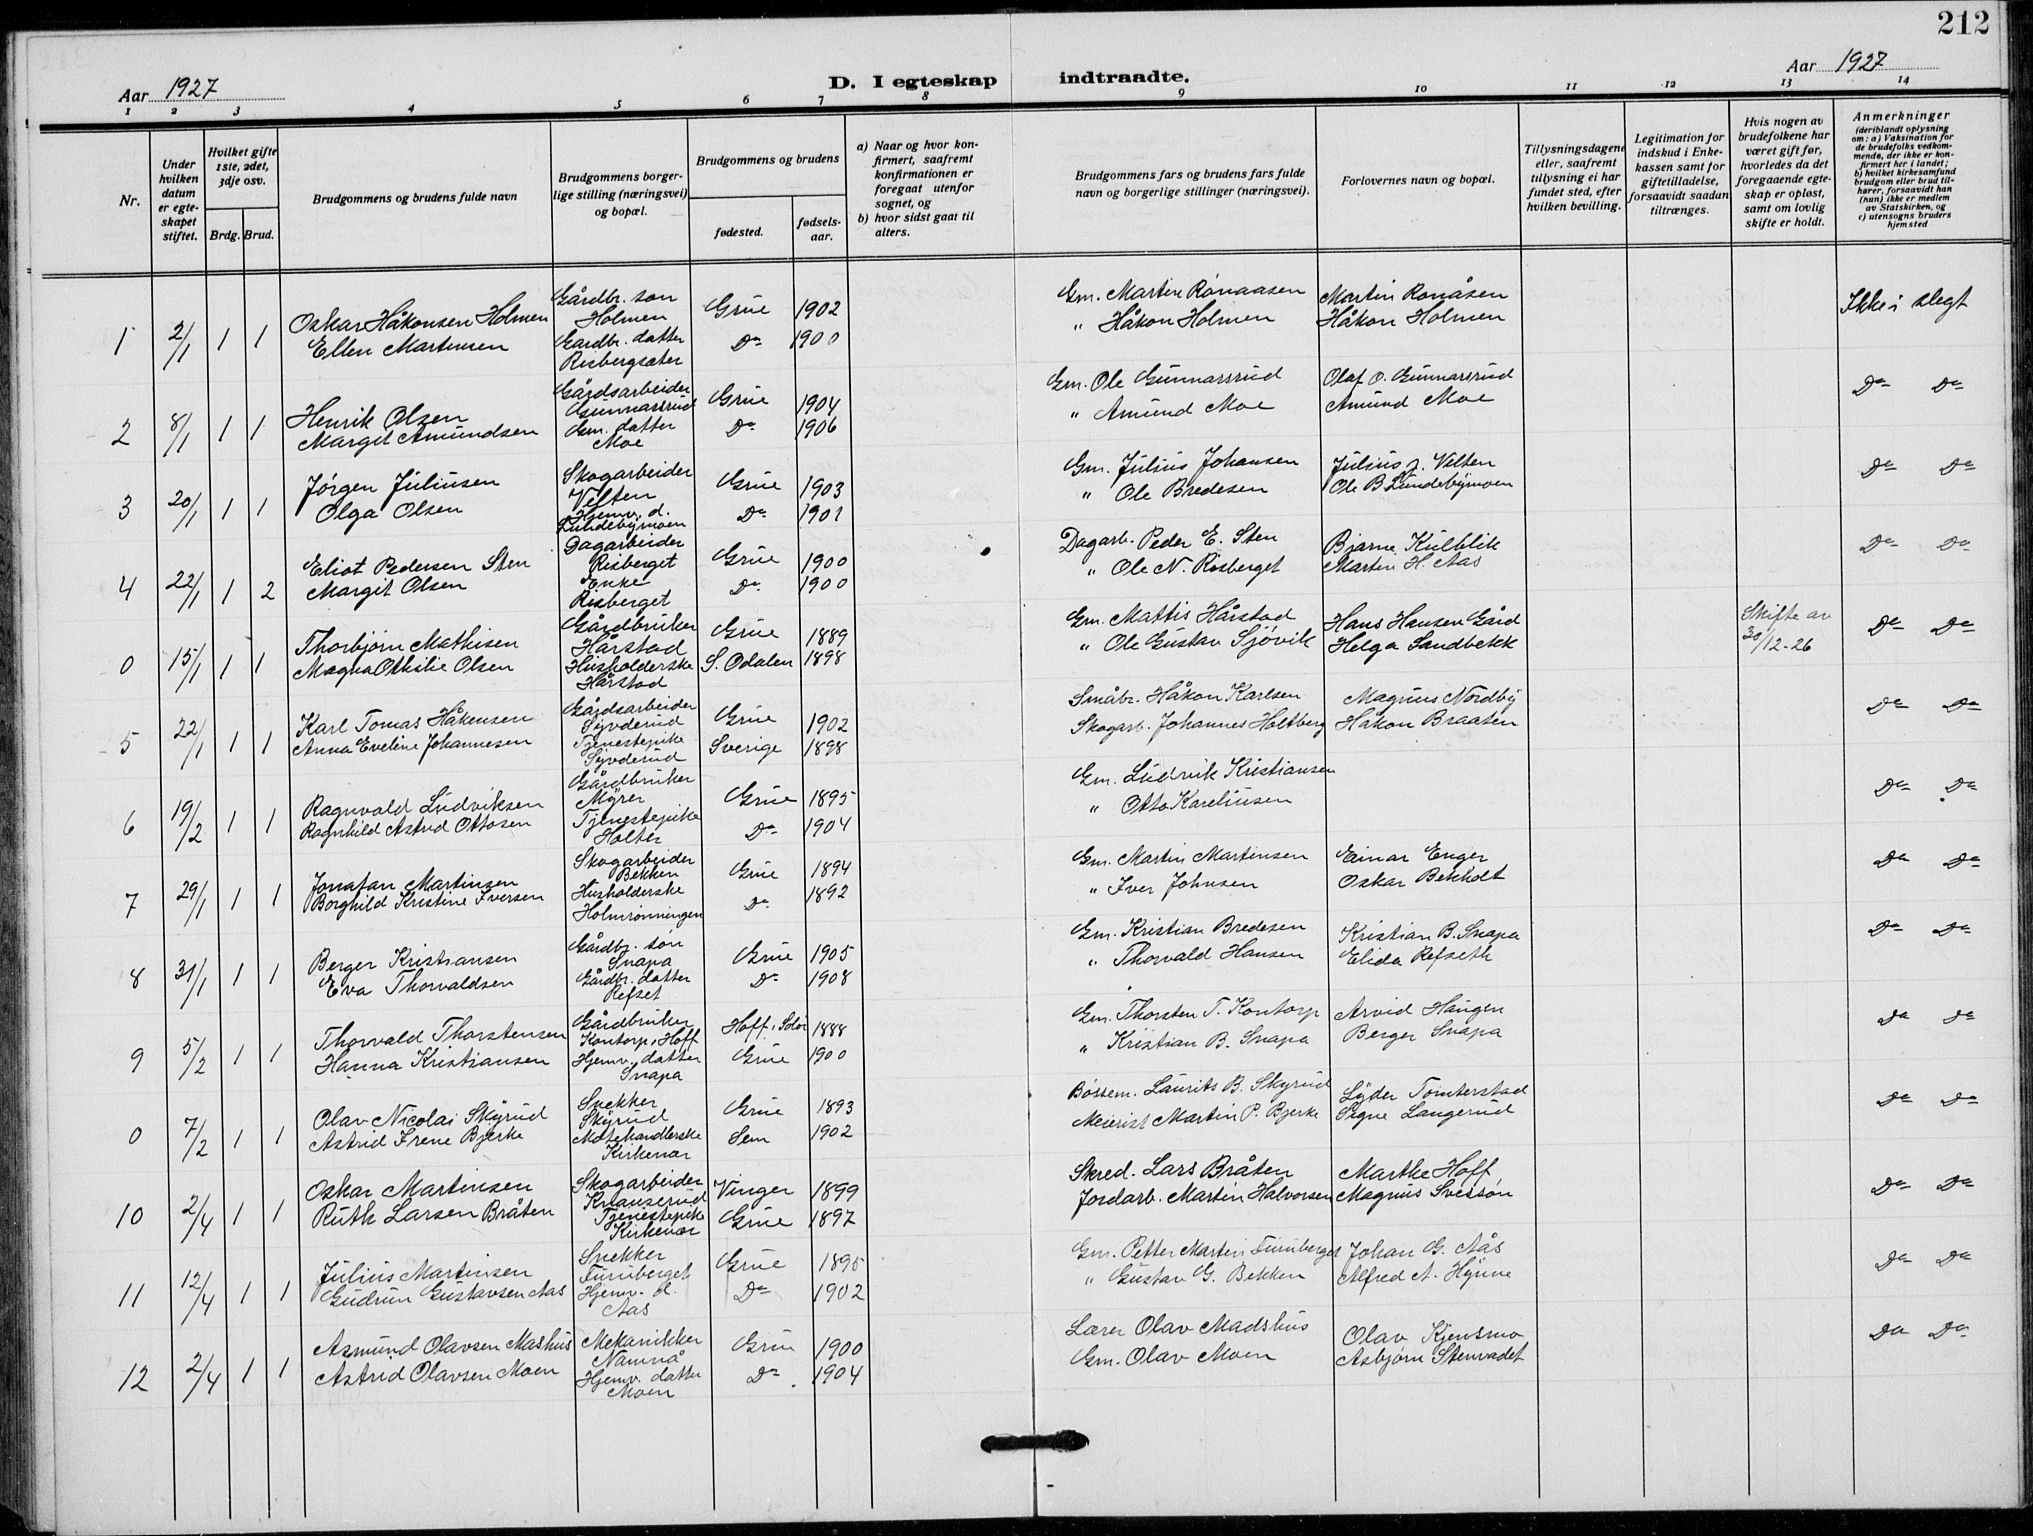 212
Aar 1927
D. I egteskap indtraadte.
Aar 1927
1 2 3 4 5 6 7 8 9 10 11 12 13 14
Nr.
Under hvilken datum er egteskapet stiftet.
Hvilket gifte 1ste, 2det, 3dje osv.
Brdg. Brud.
Brudgommens og brudens fulde navn
Brudgommens borgerlige stilling (næringsvei) og bopæl.
Brudgommens og brudens
fødested.
fødselsaar.
a) Naar og hvor konfirmert, saafremt konfirmationen er foregaat utenfor sognet, og
b) hvor sidst gaat til alters.
Brudgommens fars og brudens fars fulde navn og borgerlige stillinger (næringsvei).
Forlovernes navn og bopæl.
Tillysningsdagene eller, saafremt tillysning ei har fundet sted, efter hvilken bevilling.
Legitimation for indskud i Enkekassen samt for giftetilladelse, forsaavidt saadan tiltrænges.
Hvis nogen av brudefolkene har været gift før, hvorledes da det foregaaende egteskap er opløst, samt om lovlig skifte er holdt.
Anmerkninger
(deriblandt oplysning om: a) Vaksination for de brudefolks vedkommende, der ikke er konfirmert her i landet; b) hvilket kirkesamfund brudgom eller brud tilhører, forsaavidt han (hun) ikke er medlem av Statskirken, og c) utensogns bruders hjemsted
1 2/1 1 1 Oskar Håkonsen Holmen Gårdbr. søn Holmen Grue 1902 Gm. Martin Rønaasen Martin Rønåsen Ikke i slegt
Ellen Martinsen Gardbr. datter Risbergsæter Do 1900 " Håkon Holmen Håkon Holmen
2 8/1 1 1 Henrik Olsen Gårdsarbeider Gunnarsrud Grue 1904 Gm. Ole Gunnarsrud Olaf O. Gunnarsrud Do Do
Margit Amundsen Gm. datter Moe Do 1906 " Amund Moe Amund Moe
3 20/1 1 1 Jørgen Juliusen Skogarbeider Velten Grue 1903 Gm. Julius Johansen Julius J. Velten Do Do
Olga Olsen Hjemv. d. Lundebymoen Do 1901 " Ole Bredesen Ole B Lundebymoen
4 22/1 1 2 Eliot Pedersen Sten Dagarbeider Risberget Grue 1900 Dagarb. Peder E. Sten Bjarne Kulblik Do Do
Margit Olsen Enke Risberget Do 1900 " Ole N. Risberget Martin H. Aas
0 15/1 1 1 Thorbjørn Mathisen Gårdbruker Hårstad Grue 1889 Gm. Mattis Hårstad Hans Hansen Gård Skifte av 30/12-26 Do Do
Magna Othilie Olsen Husholderske Hårstad S. Odalen 1898 " Ole Gustav Sjøvik Helga Sandbekk
5 22/1 1 1 Karl Tomas Håkensen Gårdsarbeider Syvderud Grue 1902 Småbr. Håkon Karlsen Magnus Nordby Do Do
Anna Eveline Johannesen Tjenestepike Syvderud Sverige 1898 Skogarb. Johannes Holtberg Håkon Braaten
6 19/2 1 1 Ragnvald Ludviksen Gårdbruker Myrer Grue 1895 Gm. Ludvik Kristiansen Do Do
Ragnhild Astrid Ottosen Tjenestepike Holter Do 1904 " Otto Kareliusen
7 29/1 1 1 Jonatan Martinsen Skogarbeider Bekken Grue 1894 Gm. Martin Martinsen Einar Enger Do Do
Borghild Kristine Iversen Husholderske Holmrønningen Do 1892 " Iver Johnsen Oskar Bekholt
8 31/1 1 1 Berger Kristiansen Gårdbr. søn Snapa Grue 1905 Gm. Kristian Bredesen Kristian B. Snapa Do Do
Eva Thorvaldsen Gårdbr. datter Refset Do 1908 " Thorvald Hansen Elida Refseth
9 5/2 1 1 Thorvald Thorstensen Gårdbruker Kontorp, Hoff Hoff, Solør 1888 Gm. Thorsten T. Kontorp Arvid Haugen Do Do
Hanna Kristiansen Hjemv. datter Snapa Grue 1900 " Kristian B. Snapa Berger Snapa
0 7/2 1 1 Olav Nicolai Skyrud Snekker Skyrud Grue 1893 Bøssem. Laurits B. Skyrud Lyder Tomterstad Do Do
Astrid Irene Bjerke Motehandlerske Kirkenær Sem 1902 Meierist Martin P. Bjerke Signe Langerud
10 2/4 1 1 Oskar Martinsen Skogarbeider Knauserud Vinger 1899 Skred. Lars Bråten Marthe Hoff Do Do
Ruth Larsen Bråten Tjenestepike Kirkenær Grue 1897 Jordarb. Martin Halvorsen Magnus Svessøn
11 12/4 1 1 Julius Martinsen Snekker Furuberget Grue 1895 Gm. Petter Martin Furuberget Johan G. Aås Do Do
Gudrun Gustavsen Aas Hjemv. d. Aas Do 1902 " Gustav G. Bekken Alfred A. Hynne
12 2/4 1 1 Asmund Olavsen Mashus Mekanikker Namnå Grue 1900 Lærer Olav Madshus Olav Kjensmo Do Do
Astrid Olavsen Moen Hjemv. datter Moen Do 1904 Gm. Olav Moen Asbjørn Stenvadet